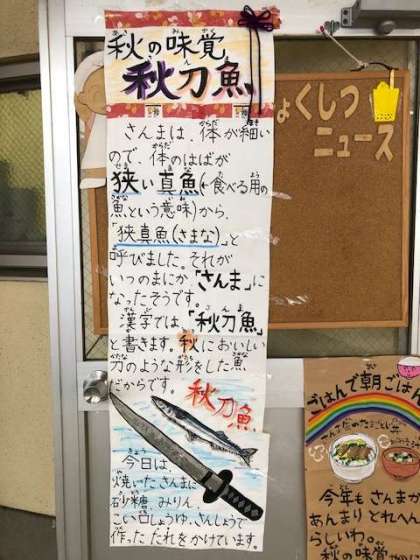 秋の味覚
秋刀魚
さんまは、体が細い
ので、体のはばが
狭い真魚(←食べる用の
魚という意味)から、
「狭真魚(さまな)」と
呼びました。それが
いつのまにか「さんま」に
なったそうです。
漢字では、「秋刀魚」
と書きます。秋においしい
刀のような形をした魚
だからです。
秋刀魚
今日は、
焼いたさんまに
砂糖、みりん、
こい口しょうゆ、さんしょうで
作ったたれをかけています。
くしつ
ニュース
ごはんで朝ごはん
今年もさんま
あんまりとれへん
らしいわ。
秋の味覚